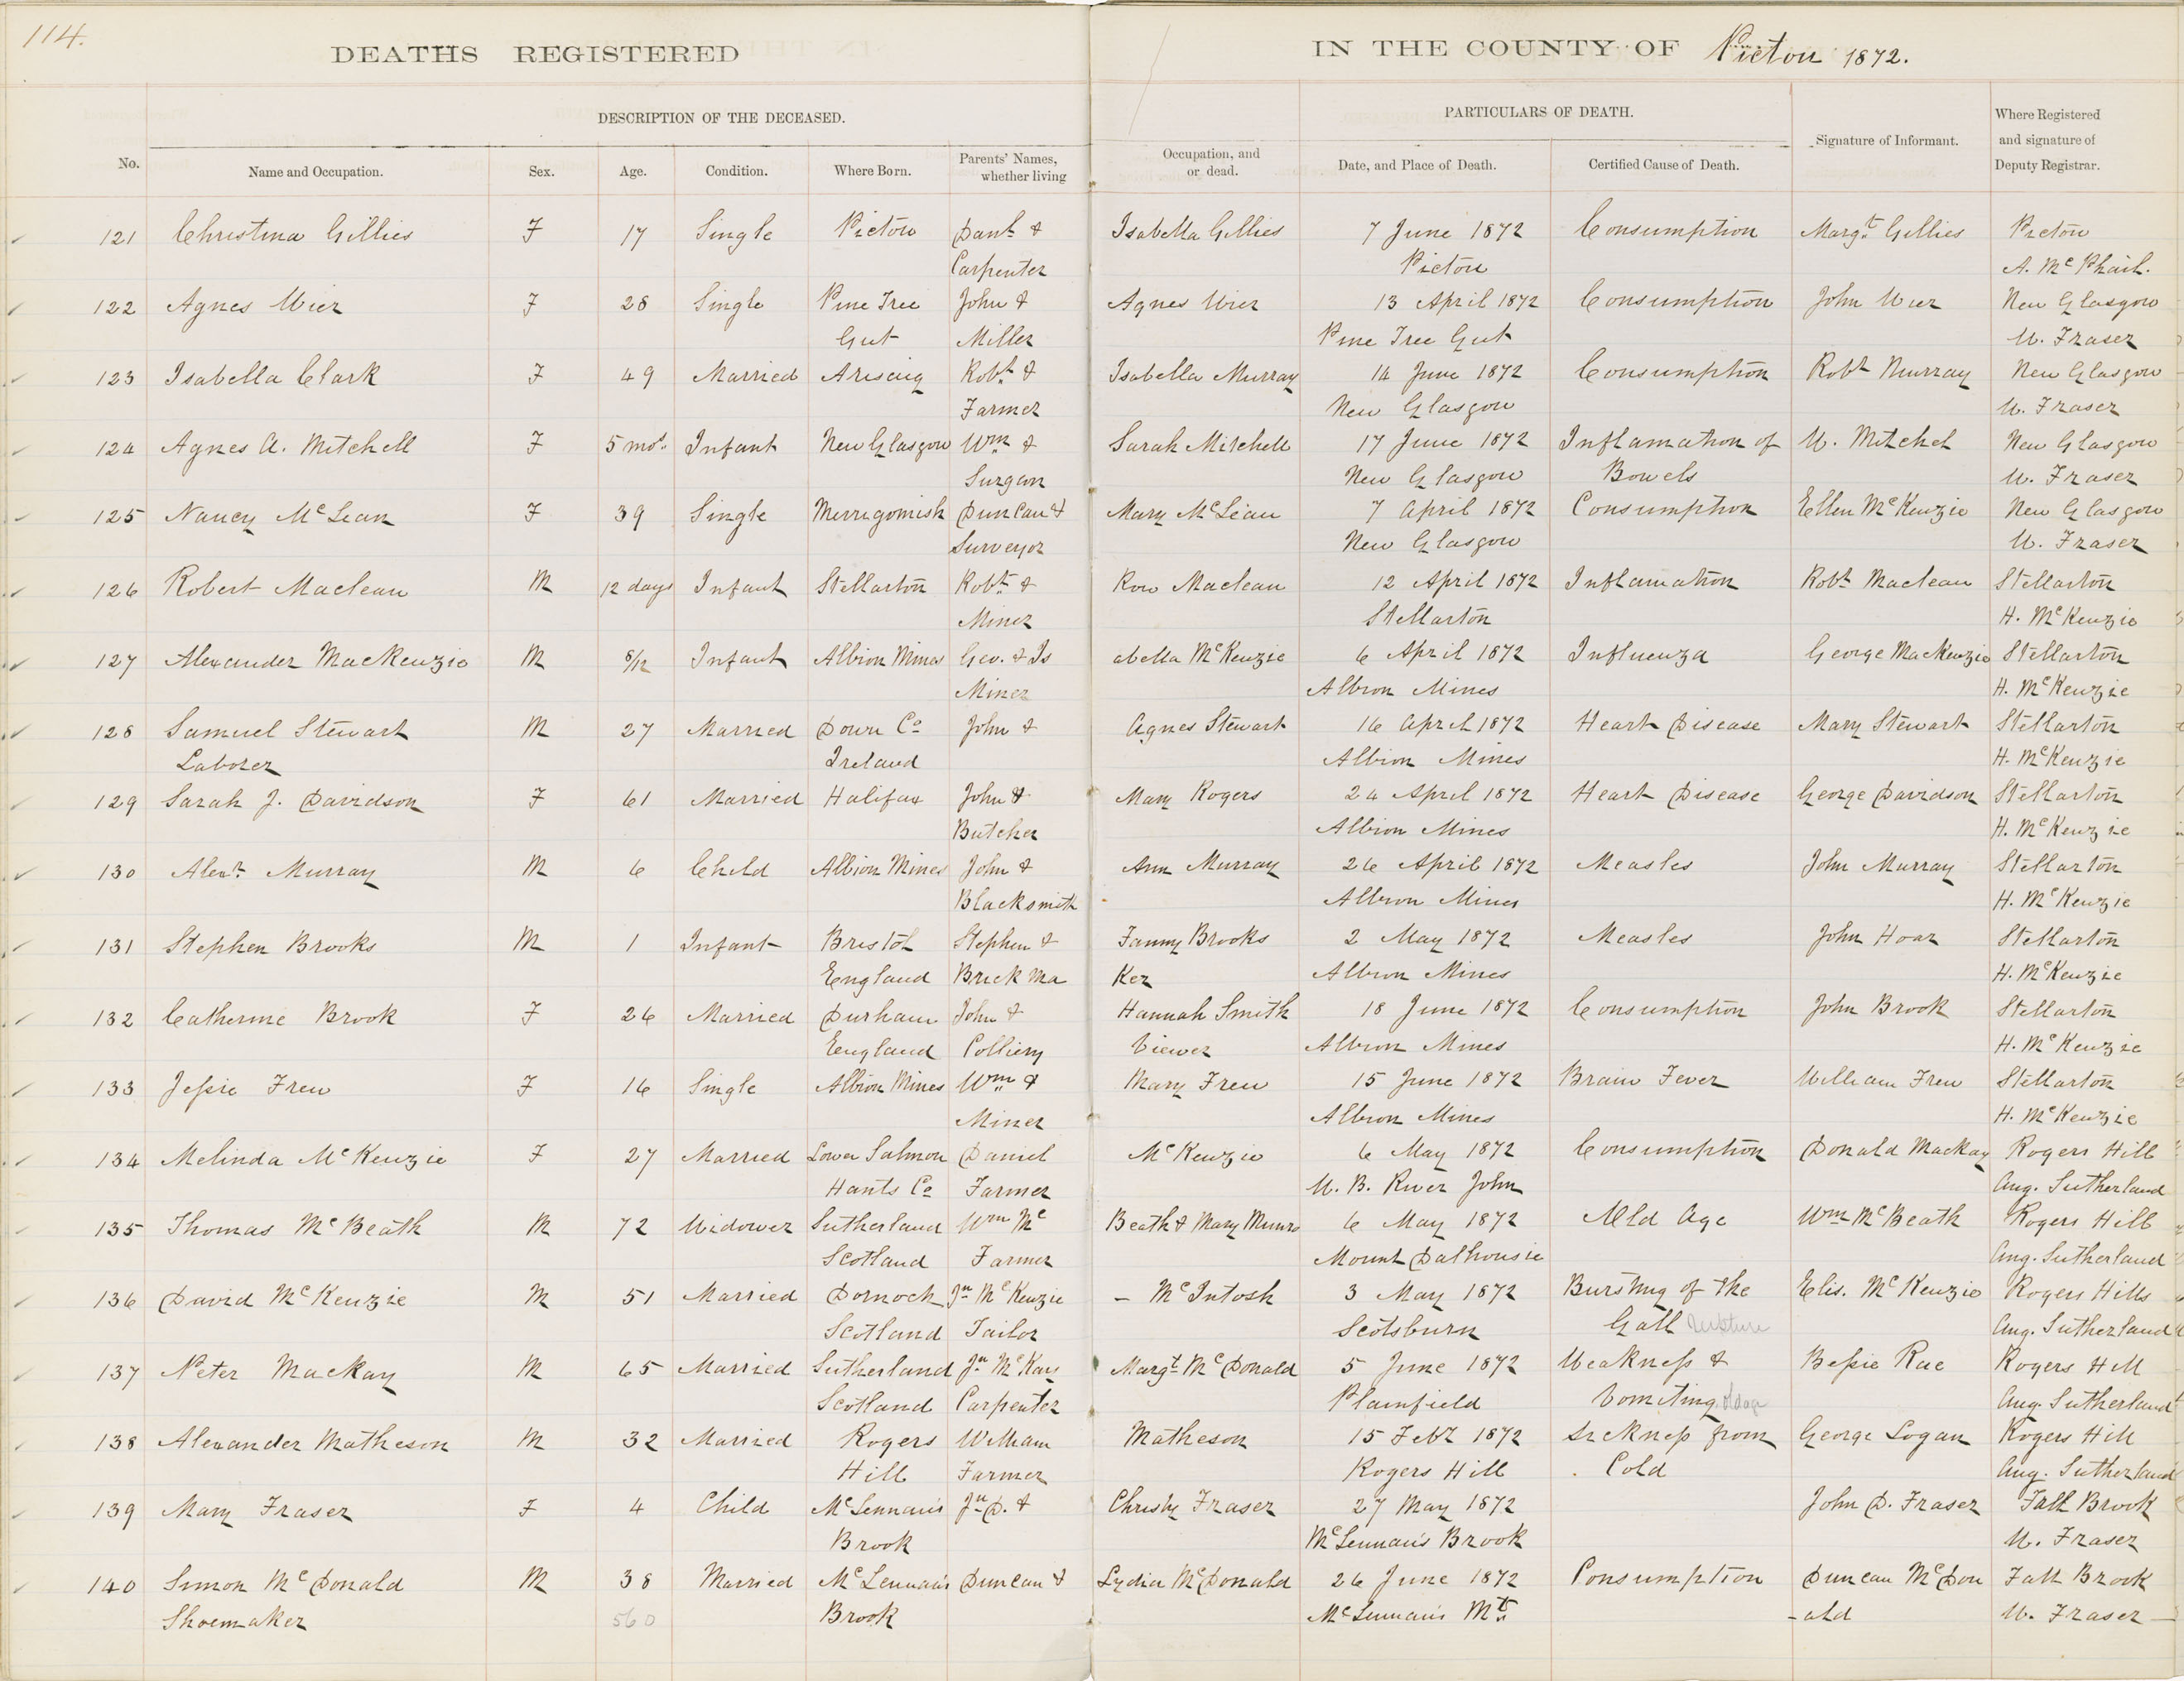 114.
DEATHS REGISTERED IN THE COUNTY OF Pictou 1872.
DESCRIPTION OF THE DECEASED. PARTICULARS OF DEATH.
No. Name and Occupation. Sex. Age. Condition. Where Born. Parents' Names, whether living Occupation, and or dead. Date, and Place of Death. Certified Cause of Death. Signature of Informant. Where Registered and signature of Deputy Registrar.
121 Christina Gillies F 17 Single Pictou Danl. & Isabella Gillies 7 June 1872 Consumption Margt. Gillies Pictou
Carpenter Pictou A. McPhail.
122 Agnes Wier F 28 Single Pine Tree John & Agnes Wier 13 April 1872 Consumption John Wier New Glasgow
Gut Miller Pine Tree Gut W. Fraser
123 Isabella Clark F 49 Married Arisaig Robt. & Isabella Murray 14 June 1872 Consumption Robt Murray New Glasgow
Farmer New Glasgow W. Fraser
124 Agnes A. Mitchell F 5 mos. Infant New Glasgow Wm & Sarah Mitchell 17 June 1872 Inflamation of W. Mitchel New Glasgow
Surgeon New Glasgow Bowels W. Fraser
125 Nancy McLean F 39 Single Merrigomish Duncan & Mary McLean 7 April 1872 Consumption Ellen McKenzie New Glasgow
Surveyor New Glasgow W. Fraser
126 Robert Maclean M 12 days Infant Stellarton Robt. & Maclean 12 April 1872 Inflamation Robt Maclean Stellarton
Miner Stellarton H. McKenzie
127 Alexander MacKenzie M 8/12 Infant Albion Mines Geo. & Is abella McKenzie 6 April 1872 Influenza George MacKenzie Stellarton
Miner Albion Mines H. McKenzie
128 Samuel Stewart M 27 Married Down Co John & Agnes Stewart 16 April 1872 Heart Disease Mary Stewart Stellarton
Laborer Ireland Albion Mines H. McKenzie
129 Sarah J. Davidson F 61 Married Halifax John & Mary Rogers 24 April 1872 Heart Disease George Davidson Stellarton
Butcher Albion Mines H. McKenzie
130 Alexr. Murray M 6 Child Albion Mines John & Ann Murray 26 April 1872 Measles John Murray Stellarton
Blacksmith Albion Mines H. McKenzie
131 Stephen Brooks M 1 Infant Bristol Stephen & Fanny Brooks 2 May 1872 Measles John Hoar Stellarton
England Brick Ma Ker Albion Mines H. McKenzie
132 Catherine Brook F 26 Married Durham John & Hannah Smith 18 June 1872 Consumption John Brook Stellarton
England Colliery Viewer Albion Mines H. McKenzie
133 Jessie Frew F 16 Single Albion Mines Wm & Mary Frew 15 June 1872 Brain Fever William Frew Stellarton
Miner Albion Mines H. McKenzie
134 Melinda McKenzie F 27 Married Lower Salmon Daniel McKenzie 6 May 1872 Consumption Donald Mackay Rogers Hill
Hants Co Farmer W. B. River John Ang. Sutherland
135 Thomas McBeath M 72 Widower Sutherland Wm Mc Beath & Mary Munro 6 May 1872 Old Age Wm McBeath Rogers Hill
Scotland Farmer Mount Dalhousie Ang. Sutherland
136 David McKenzie M 51 Married Dornoch Jn McKenzie – McIntosh 3 May 1872 Bursting of the Elis. McKenzie Rogers Hills
Scotland Tailor Scotsburn Gall Ang. Sutherland
137 Peter Mackay M 65 Married Sutherland Jn McKay Margt McDonald 5 June 1872 Weakness & Bessie Rae Rogers Hill
Scotland Carpenter Plainfield Vomiting Ang. Sutherland
138 Alexander Matheson M 32 Married Rogers William Matheson 15 Febr 1872 Sickness from George Logan Rogers Hill
Hill Farmer Rogers Hill Cold Ang. Sutherland
139 Mary Fraser F 4 Child McLennan's Jn D. & Christy Fraser 27 May 1872 John D. Fraser Fall Brook
Brook McLennan's Brook W. Fraser
140 Simon McDonald M 38 Married McLennan's Duncan & Lydia McDonald 26 June 1872 Consumption Duncan McDon Fall Brook
Shoemaker 560 Brook McLennan's Mt. -ald W. Fraser